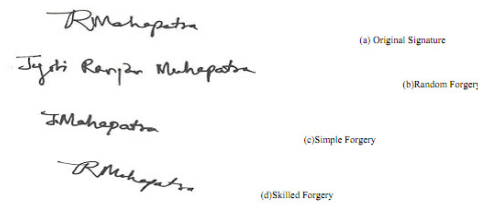 JRMahapatra
(a) Original Signature
Jyoti Ranjan Mahapatra
(b)Random Forgery
J.Mahapatra
(c)Simple Forgery
JRMahapatra
(d)Skilled Forgery